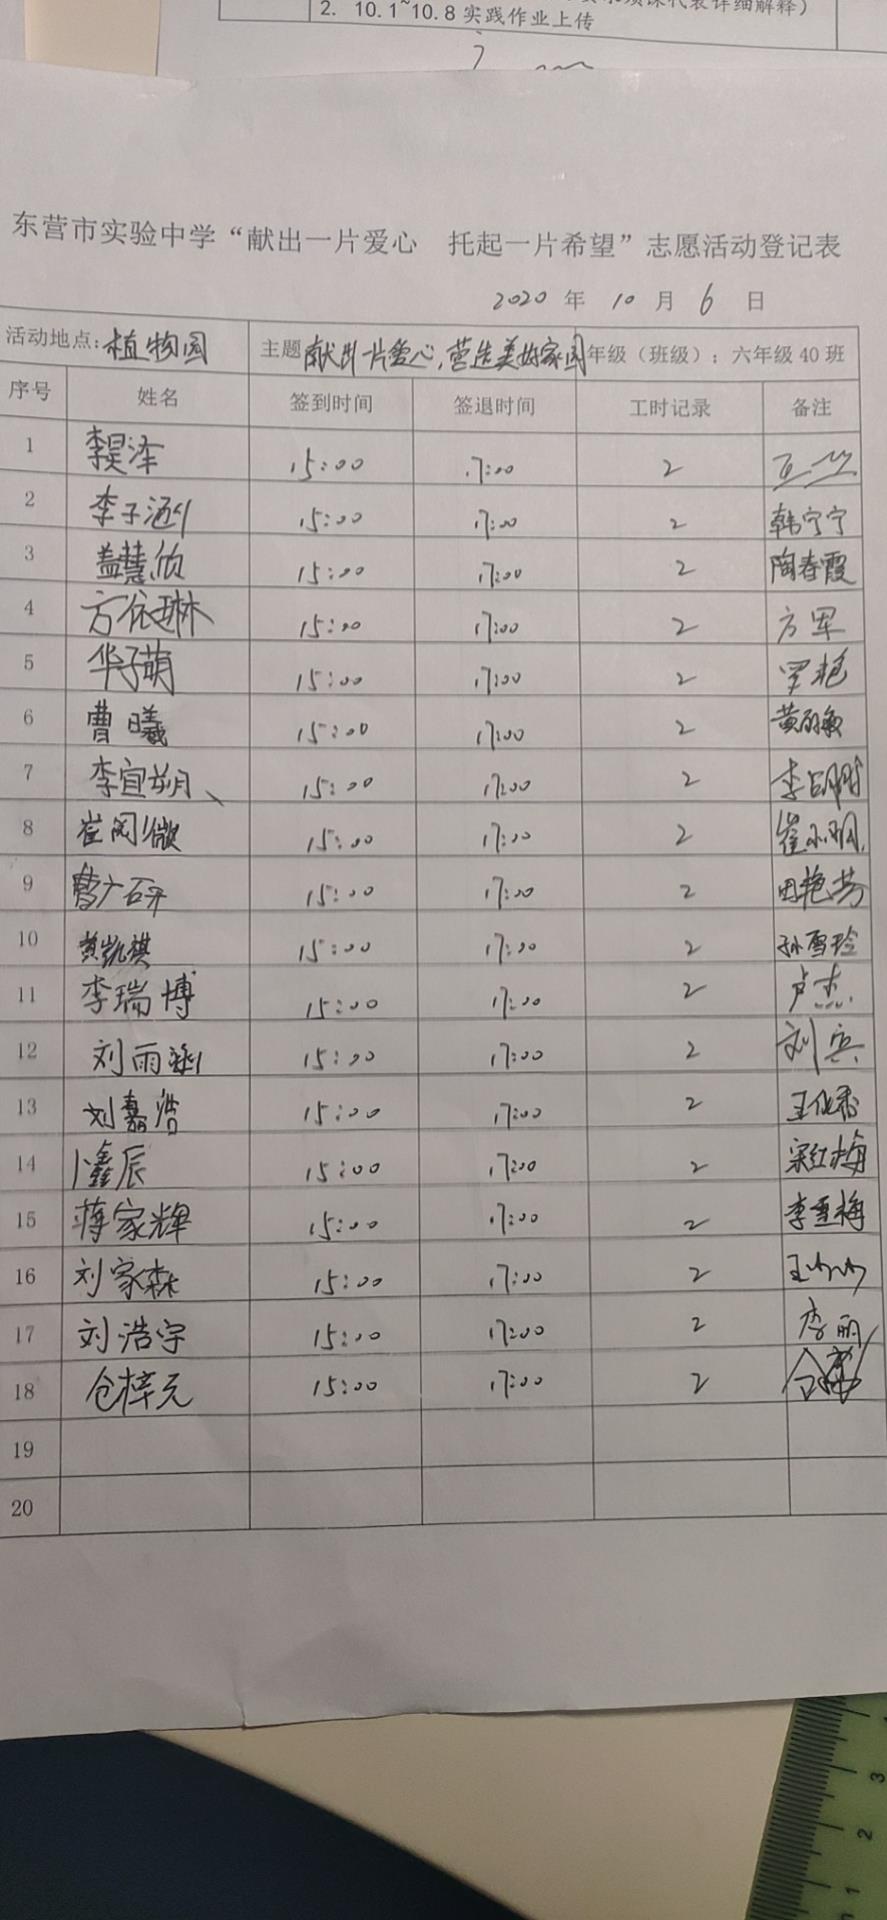 2. 10.1~10.8实践作业上传
东营市实验中学“献出一片爱心 托起一片希望”志愿活动登记表
2020 年 10 月 6 日
活动地点:植物园 主题 献出一片爱心,营造美好家园 年级（班级）：六年级40班
序号 姓名 签到时间 签退时间 工时记录 备注
1 李昊泽 15:00 17:00 2
2 李子涵 15:00 17:00 2 韩宁宁
3 盖慧欣 15:00 17:00 2 陶春霞
4 方依琳 15:00 17:00 2 方军
5 华子萌 15:00 17:00 2 罗艳
6 曹曦 15:00 17:00 2 黄丽敏
7 李宜朔 15:00 17:00 2
8 15:00 17:00 2
9 15:00 17:00 2 田艳芳
10 黄凯祺 15:00 17:00 2 孙雪玲
11 李瑞博 15:00 17:00 2 卢杰
12 刘雨涵 15:00 17:00 2 刘宾
13 刘嘉浩 15:00 17:00 2
14 卜鑫辰 15:00 17:00 2 宋红梅
15 蒋家辉 15:00 17:00 2 李重梅
16 刘家森 15:00 17:00 2
17 刘浩宇 15:00 17:00 2 李丽
18 仓梓元 15:00 17:00 2
19
20
3
2
1